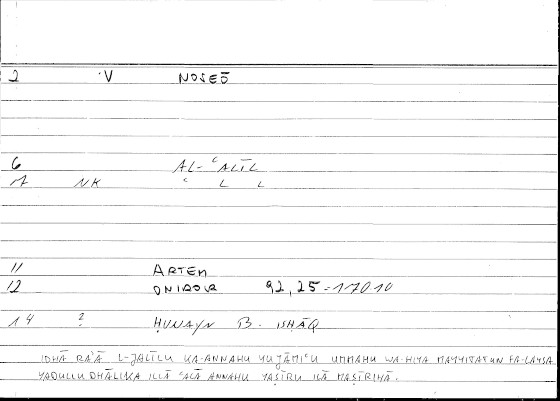 2 V NOSEŌ
6 AL-ʿALĪL
7 NK ʿ L L
11 ARTEM
12 ONIROCR 92,25 = 170 10
14 ? ḤUNAYN B. ISḤĀQ
IDHĀ RAʾĀ L-JALĪLU KA-ANNAHU YUJĀMIʿU UMMAHU WA-HIYA MAYYITATUN FA-LAYSA
YADULLU DHĀLIKA ILLĀ ʿALĀ ANNAHU YAṢĪRU ILĀ MAṢĪRIHĀ.